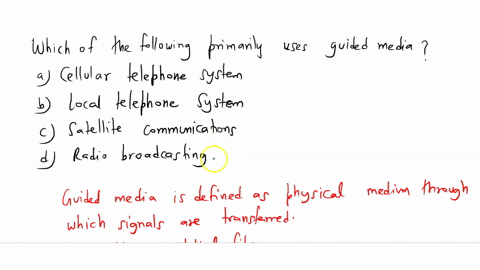 Which of the following primarily uses guided media?
a) Cellular telephone system
b) Local telephone system
c) Satellite communications
d) Radio broadcasting.
Guided media is defined as physical medium through
which signals are transferred.